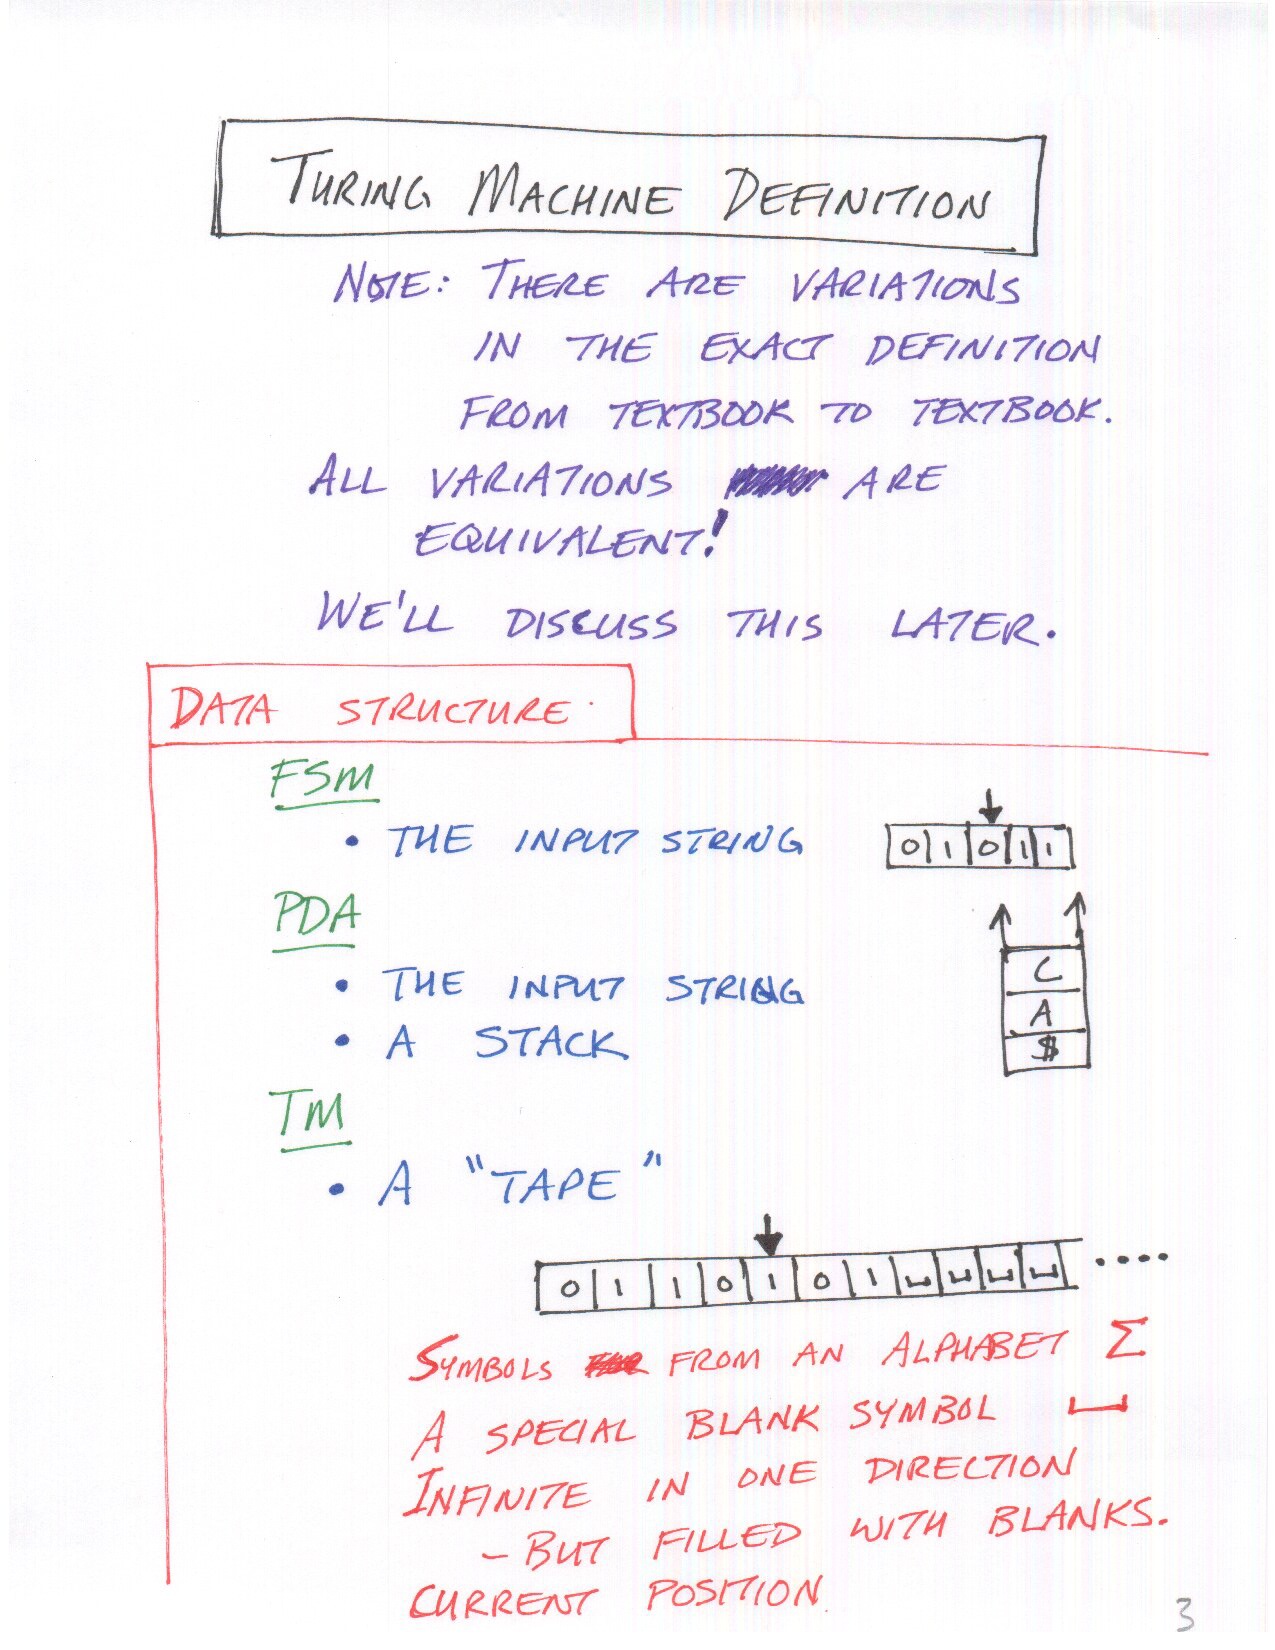 TURING MACHINE DEFINITION
NOTE: THERE ARE VARIATIONS
IN THE EXACT DEFINITION
FROM TEXTBOOK TO TEXTBOOK.
ALL VARIATIONS ARE
EQUIVALENT!
WE'LL DISCUSS THIS LATER.
DATA STRUCTURE
FSM
• THE INPUT STRING
0 1 0 1 1
PDA
• THE INPUT STRING
• A STACK
C
A
$
TM
• A "TAPE"
0 1 1 0 1 0 1 ␣ ␣ ␣ ␣ ....
SYMBOLS FROM AN ALPHABET Σ
A SPECIAL BLANK SYMBOL ␣
INFINITE IN ONE DIRECTION
- BUT FILLED WITH BLANKS.
CURRENT POSITION
3